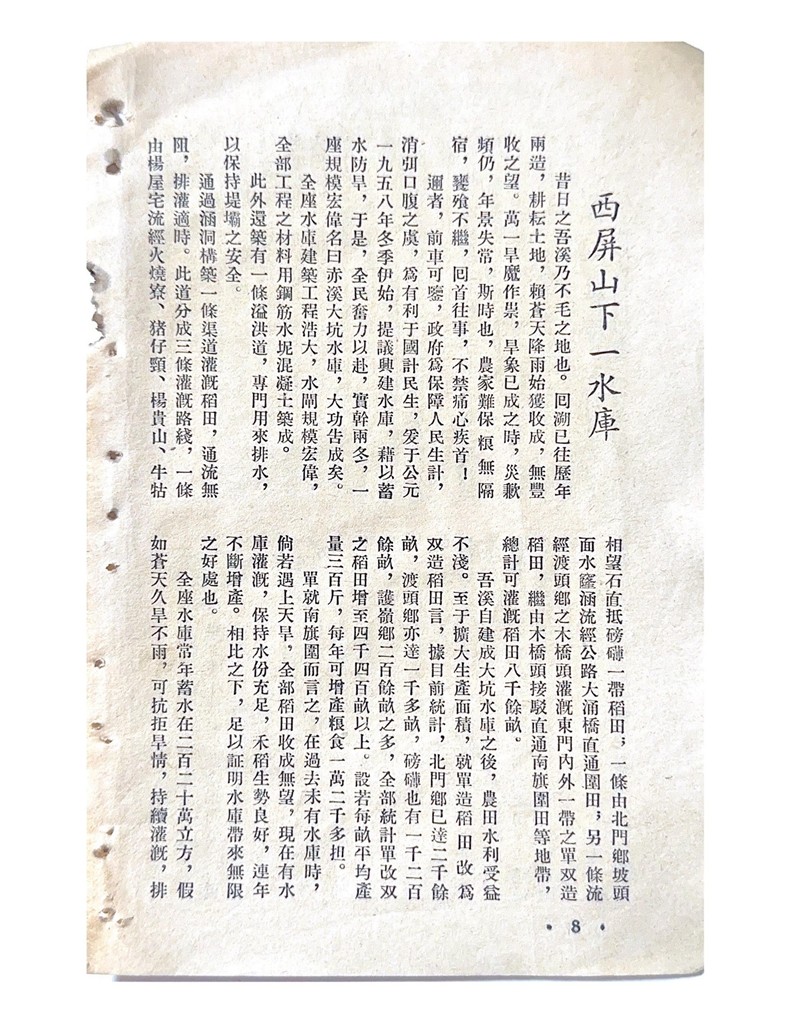 西屏山下一水庫
昔日之吾溪乃不毛之地也。回溯已往歷年
兩造，耕耘土地，賴蒼天降雨始獲收成，無豐
收之望。萬一旱魔作祟，旱象已成之時，災歉
頻仍，年景失常，斯時也，農家難保粮無隔
宿，饔飱不繼，回首往事，不禁痛心疾首！
邇者，前車可鑒，政府爲保障人民生計，
消弭口腹之虞，爲有利于國計民生，爰于公元
一九五八年冬季伊始，提議興建水庫，藉以蓄
水防旱，于是，全民奮力以赴，實幹兩冬，一
座規模宏偉名曰赤溪大坑水庫，大功告成矣。
全座水庫建築工程浩大，水閘規模宏偉，
全部工程之材料用鋼筋水坭混凝土築成。
此外還築有一條溢洪道，専門用來排水，
以保持堤壩之安全。
通過涵洞構築一條渠道灌溉稻田，通流無
阻，排灌適時。此道分成三條灌溉路綫，一條
由楊屋宅流經火燒寮、猪仔頸、楊貴山、牛牯
相望石直抵磅礴一帶稻田；一條由北門鄉坡頭
面水窿涵流經公路大涌橋直通圍田；另一條流
經渡頭鄉之木橋頭灌溉東門內外一帶之單双造
稻田，繼由木橋頭接駁直通南旗圍田等地帶，
總計可灌溉稻田八千餘畝。
吾溪自建成大坑水庫之後，農田水利受益
不淺。至于擴大生產面積，就單造稻田改爲
双造稻田言，據目前統計，北門鄉已達二千餘
畝，渡頭鄉亦達一千多畝，磅礴也有一千二百
餘畝，護嶺鄉二百餘畝之多，全部統計單改双
之稻田增至四千四百畝以上。設若每畝平均產
量三百斤，每年可增產粮食一萬二千多担。
單就南旗圍而言之，在過去未有水庫時，
倘若遇上天旱，全部稻田收成無望，現在有水
庫灌溉，保持水份充足，禾稻生勢良好，連年
不斷增產。相比之下，足以証明水庫帶來無限
之好處也。
全座水庫常年蓄水在二百二十萬立方，假
如蒼天久旱不雨，可抗拒旱情，持續灌溉，排
·8·